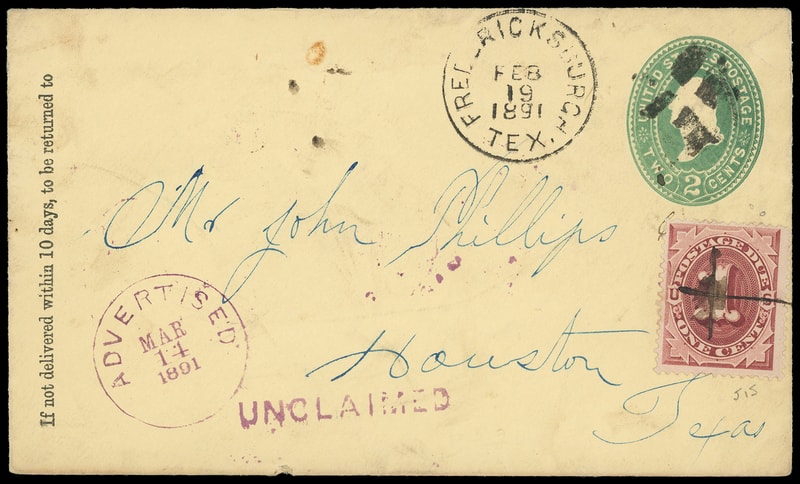 If not delivered within 10 days, to be returned to
FREDERICKSBURGH
FEB
19
1891
TEX.
UNITED STATES POSTAGE
TWO 2 CENTS
Mr John Phillips
POSTAGE DUE
ONE CENT
ADVERTISED
MAR
14
1891
Houston
UNCLAIMED
Texas
J15